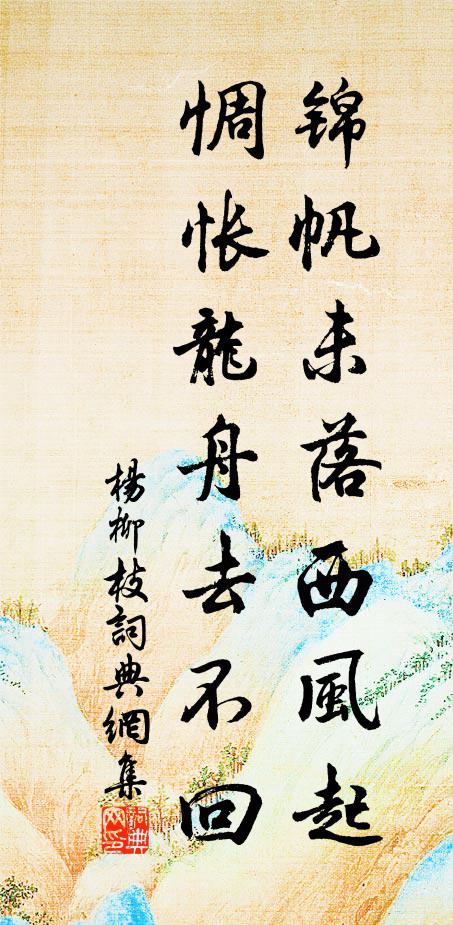 锦帆未落西風起
惆怅龍舟去不回
楊柳枝詞典網集
詞典